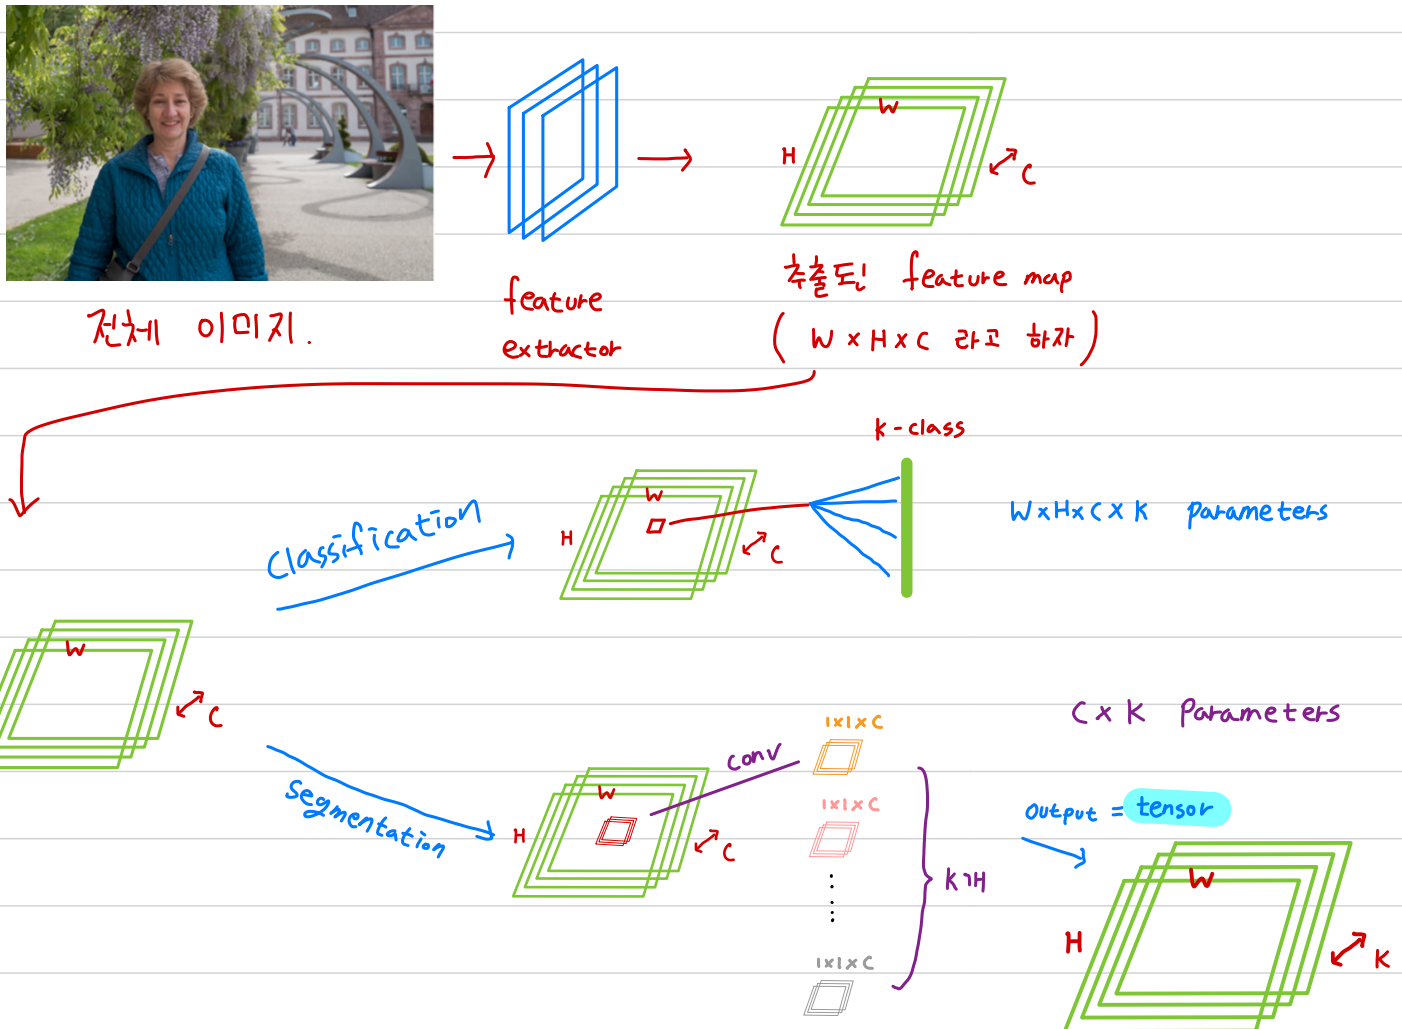 W
H
C
전체 이미지.
feature
extractor
추출된 feature map
( W × H × C 라고 하자 )
K-class
Classification
W
H
C
W×H×C×K parameters
W
C
Segmentation
W
H
C
conv
1×1×C
1×1×C
1×1×C
K개
C × K parameters
output = tensor
W
H
K